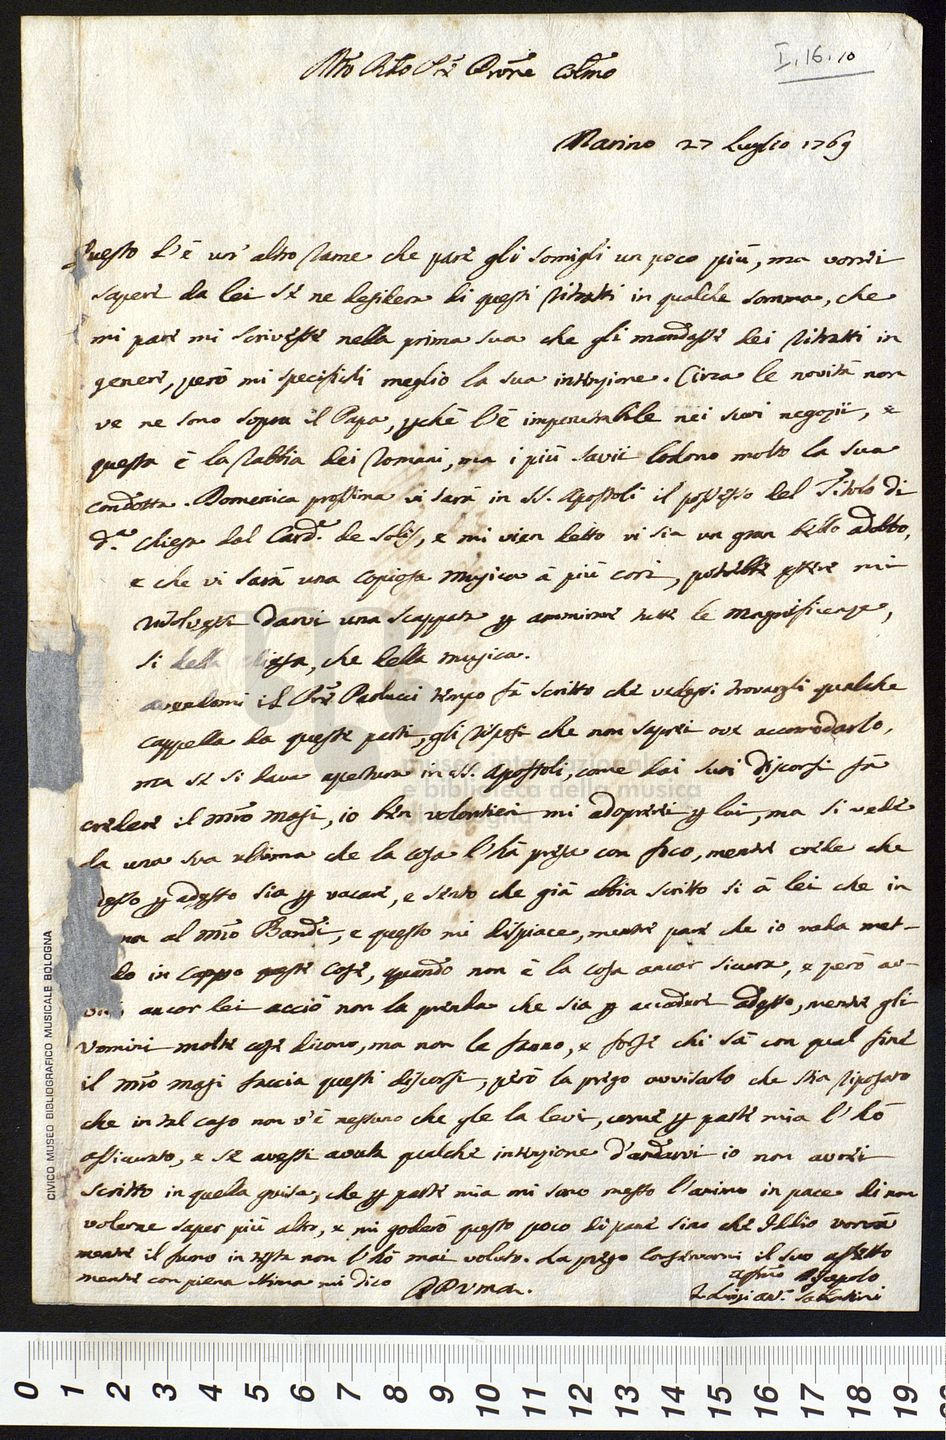 I.16.10
Mto Rdo Pre Prone Colmo
Marino 27 Luglio 1769
Questo l'è un' altro Rame che pare gli somigli un poco più, ma vorrei
sapere da lei se ne desidera di questi Ritratti in qualche somma, che
mi pare mi scrivesse nella prima sua che gli mandassi dei Ritratti in
genere, però mi specifichi meglio la sua intenzione. Circa le novità non
ve ne sono sopra il Papa, pchè l'è impenetrabile nei suoi negozii, e
questa è la rabbia dei Romani, ma i più savii lodono molto la sua
condotta. Domenica prossima vi sarà in SS. Apostoli il possesso del Titolo di
d.a Chiesa dal Card. de Solis, e mi vien detto vi sia un gran bello adobbo,
e che vi sarà una copiosa musica à più cori, potrebbe essere mi
risolvessi darvi una scappata p ammirare tutte le magnificenze,
si della chiesa, che della musica.
avendomi il Pre Paolucci tempo fà scritto che vedessi trovargli qualche
cappella da queste parti, gli risposi che non saprei ove accomodarlo,
ma se si dava apertura in SS. Apostoli, come dai suoi discorsi fà
credere il Mro Masi, io ben volontieri mi adoprerei p lui, ma si vede
da una sua ultima che la cosa l'hà presa con foco, mentre crede che
desso p adesso sia p vacare, e sento che già abbia scritto si à lei che in
al Mro Bandi, e questo mi dispiace, mentre pare che io vada met-
do in campo queste cose, quando non è la cosa ancor sicura, e però av-
ancor lei acciò non la prenda che sia p accadere adesso, mentre gli
Uomini molte cose dicono, ma non le fanno, e forse chi sà con qual fine
il Mro Masi faccia questi discorsi, però la prego avvisarlo che stia riposato
che in tal caso non v'è nessuno che gle la levi, come p parte mia l'hò
assicurato, e se avessi avuta qualche intenzione d'andarvi io non avrei
scritto in quella guisa, che p parte mia mi sono messo l'animo in pace di non
volerne saper più altro, e mi goderò questo poco di pane sino che Iddio vorrà
mentre il fumo in testa non l'hò mai voluto. La prego conservarmi il suo affetto
mentre con piena stima mi dico
D P V ma.
affmo Discepolo
F. Luigi Ant. Sabbatini
museo internazionale
e biblioteca della musica
CIVICO MUSEO BIBLIOGRAFICO MUSICALE BOLOGNA
0 1 2 3 4 5 6 7 8 9 10 11 12 13 14 15 16 17 18 19